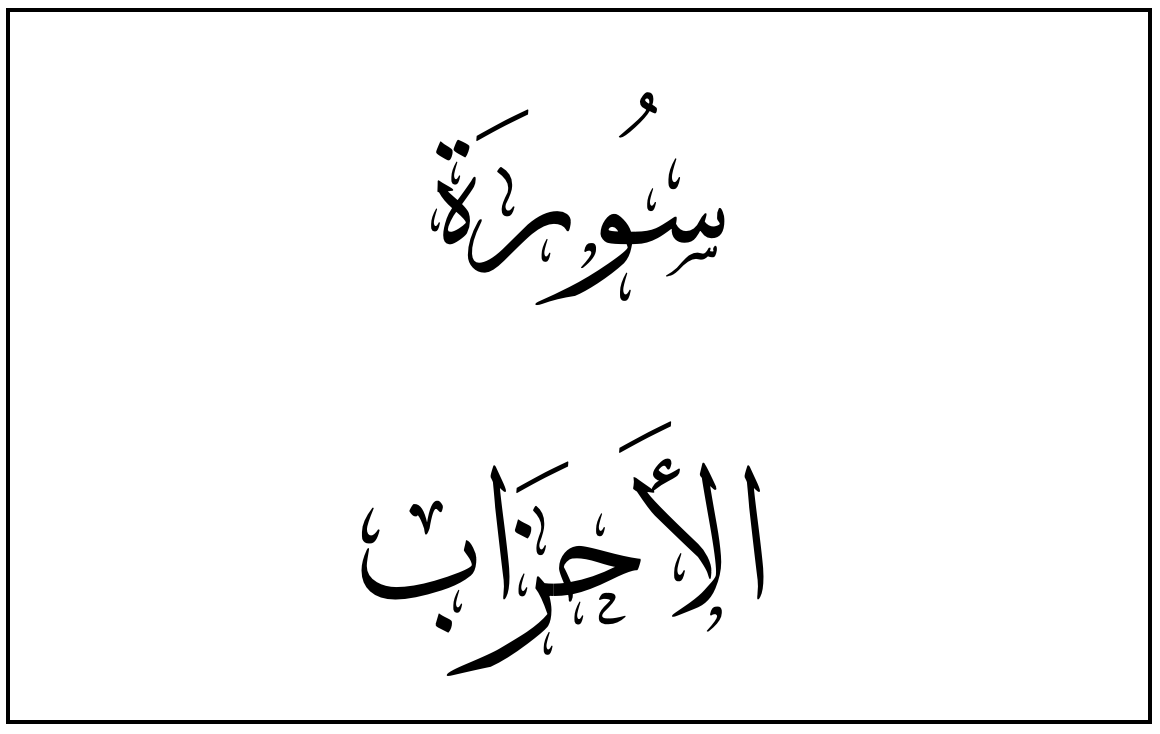 سُورَة
الأَحزَاب